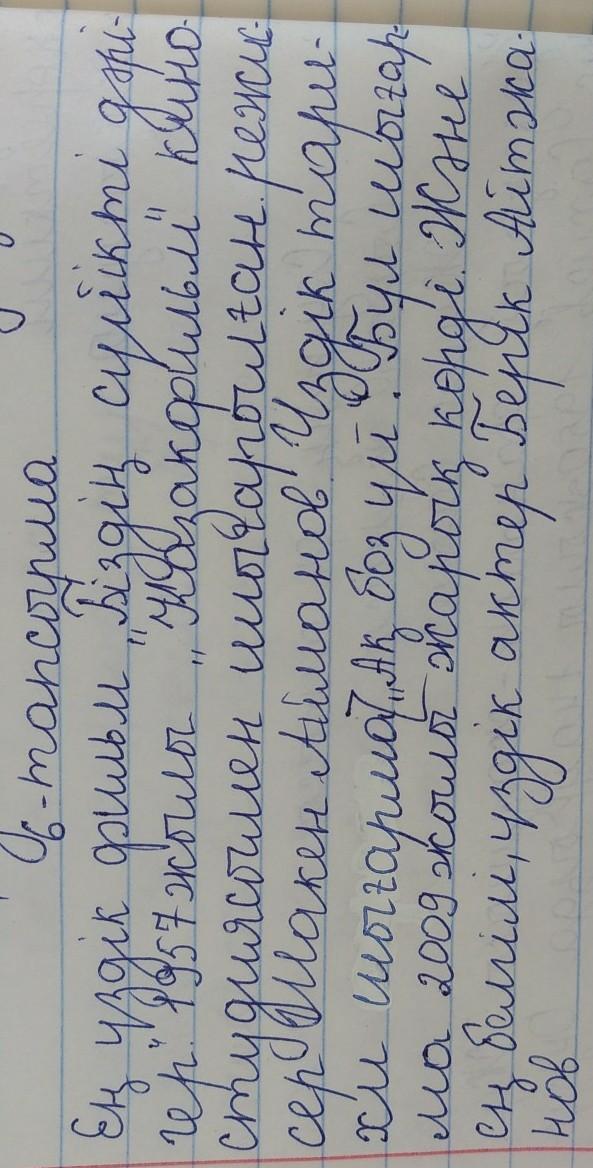 6-тапсырма
Ең үздік фильм "Біздің сүйікті дәрі-
гер" 1957 жылы "Казакфильм" кино-
студиясымен шығарылған. режис-
сер Шакен Айманов Үздік тари-
хи шығарма "Ақ боз үй". Бұл шығар-
ма 2009 жылы жарық көрді. Және
ең белгілі, үздік актер Берік Айтжа-
нов